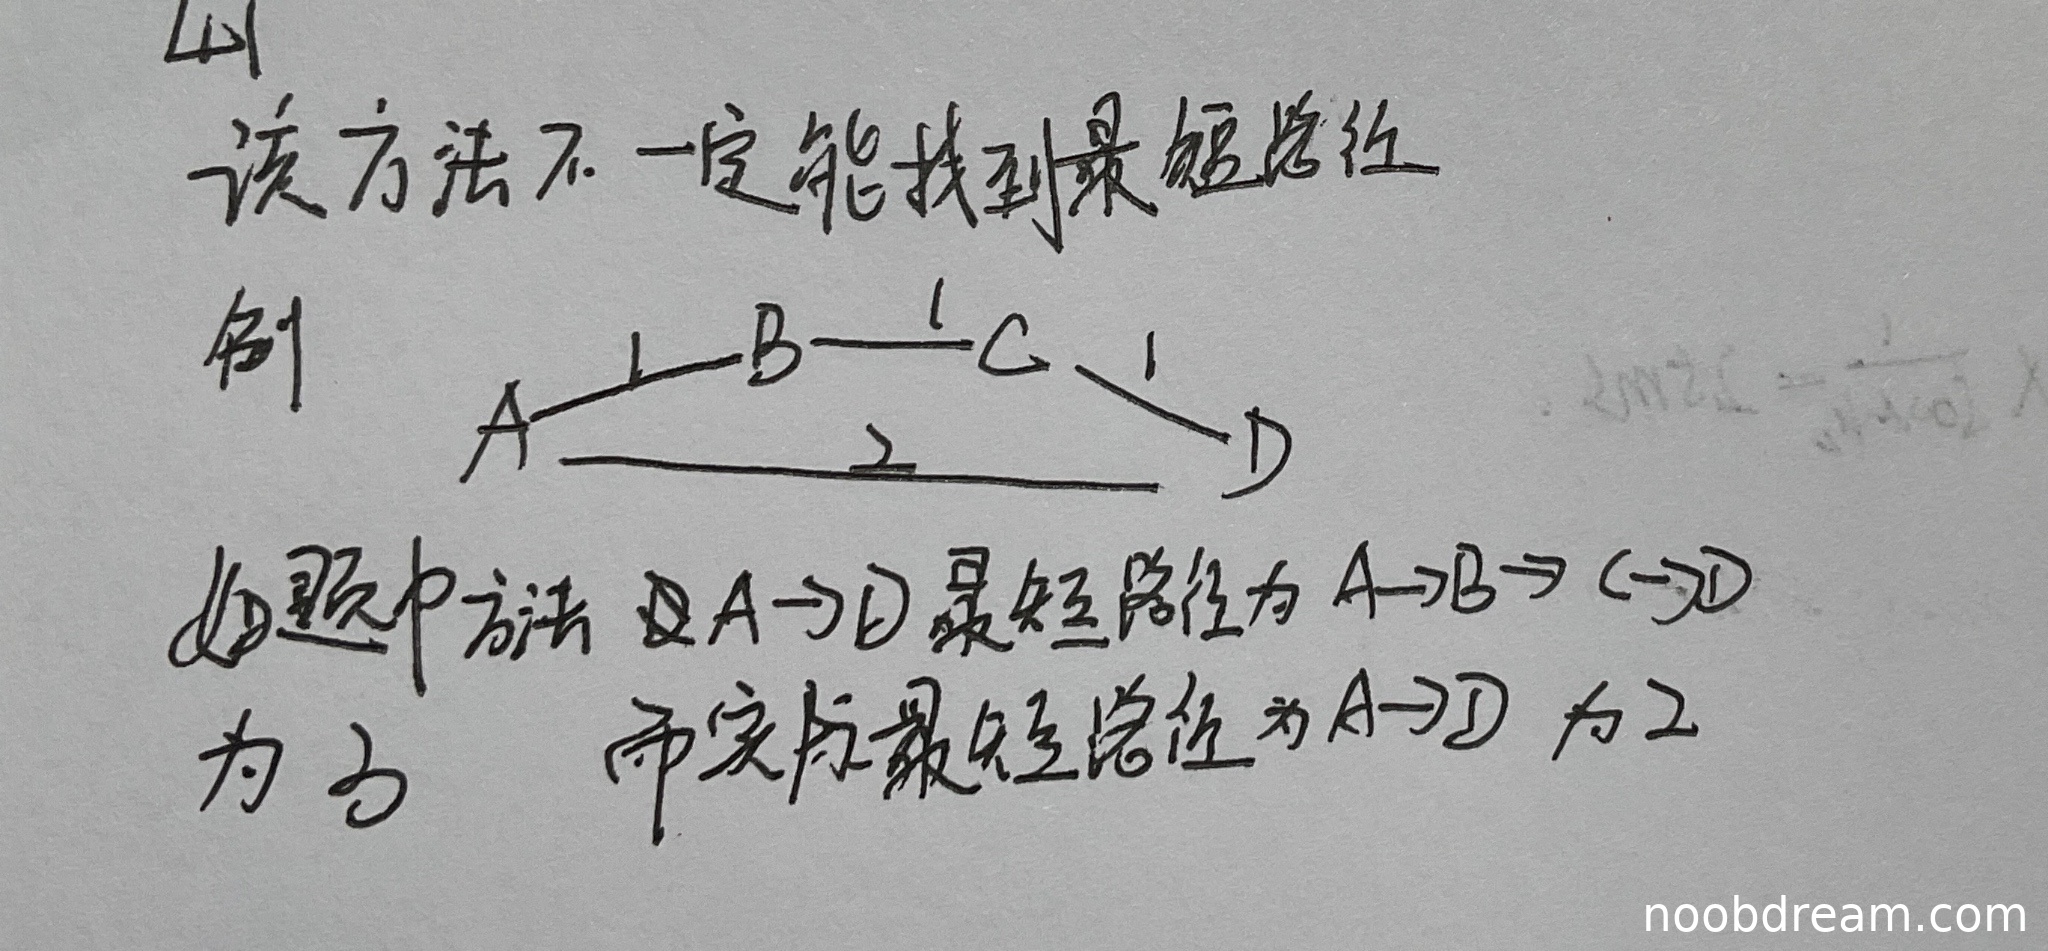 该方法不一定能找到最短路径
例
1 B 1 C 1
A 2 D
如题中方法 A→D最短路径为 A→B→C→D
为 3 而实际最短路径为A→D 为2
noobdream.com